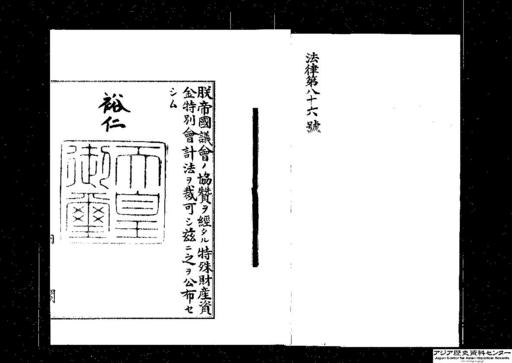 法律第八十六號
朕帝國議會ノ協贊ヲ經タル特殊財産資
金特別會計法ヲ裁可シ茲ニ之ヲ公布セ
シム
裕仁
天皇
御璽
アジア歴史資料センター
Japan Center for Asian Historical Records